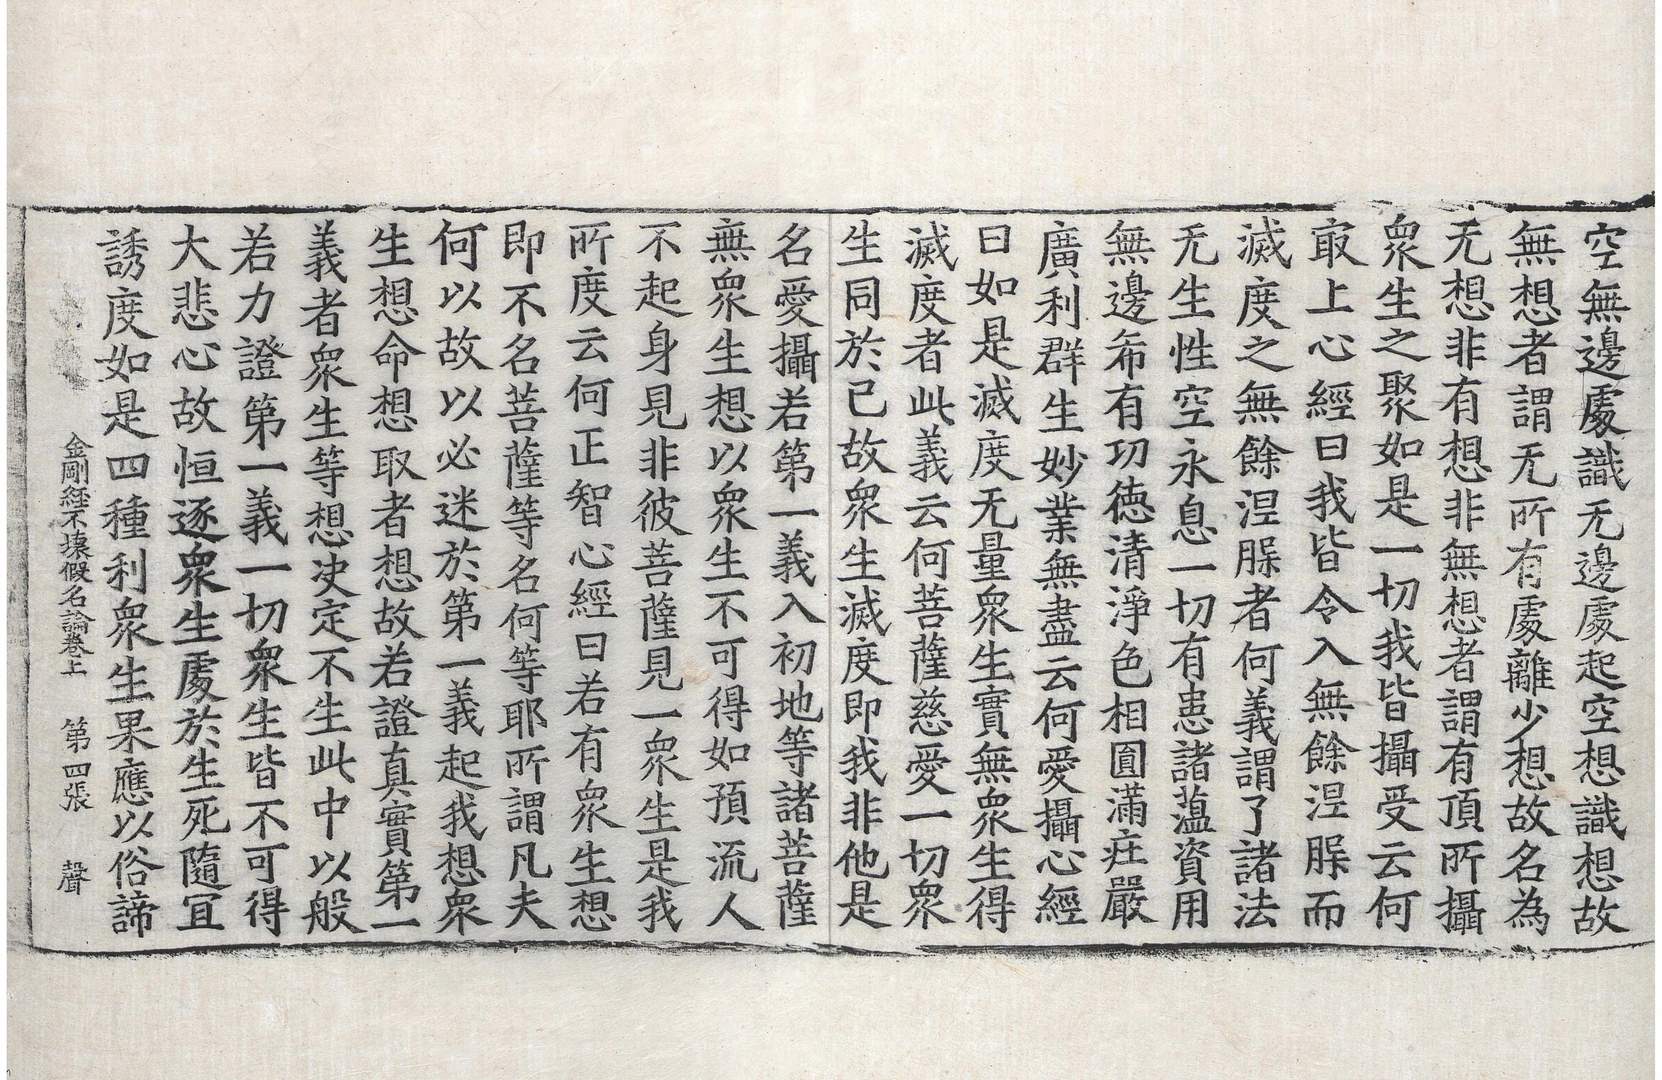 空無邊處識无邊處起空想識想故
無想者謂无所有處離少想故名為
无想非有想非無想者謂有頂所攝
衆生之聚如是一切我皆攝受云何
㝡上心經曰我皆令入無餘涅槃而
滅度之無餘涅槃者何義謂了諸法
无生性空永息一切有患諸薀資用
無邊希有功德清淨色相圓滿庄嚴
廣利群生妙業無盡云何愛攝心經
曰如是滅度无量衆生實無衆生得
滅度者此義云何菩薩慈愛一切衆
生同於已故衆生滅度即我非他是
名愛攝若第一義入初地等諸菩薩
無衆生想以衆生不可得如預流人
不起身見非彼菩薩見一衆生是我
所度云何正智心經曰若有衆生想
即不名菩薩等名何等耶所謂凡夫
何以故以必迷於第一義起我想衆
生想命想取者想故若證真實第一
義者衆生等想决定不生此中以般
若力證第一義一切衆生皆不可得
大悲心故恒逐衆生處於生死隨宜
誘度如是四種利衆生果應以俗諦
金剛経不壊假名論卷上　第四張　聲